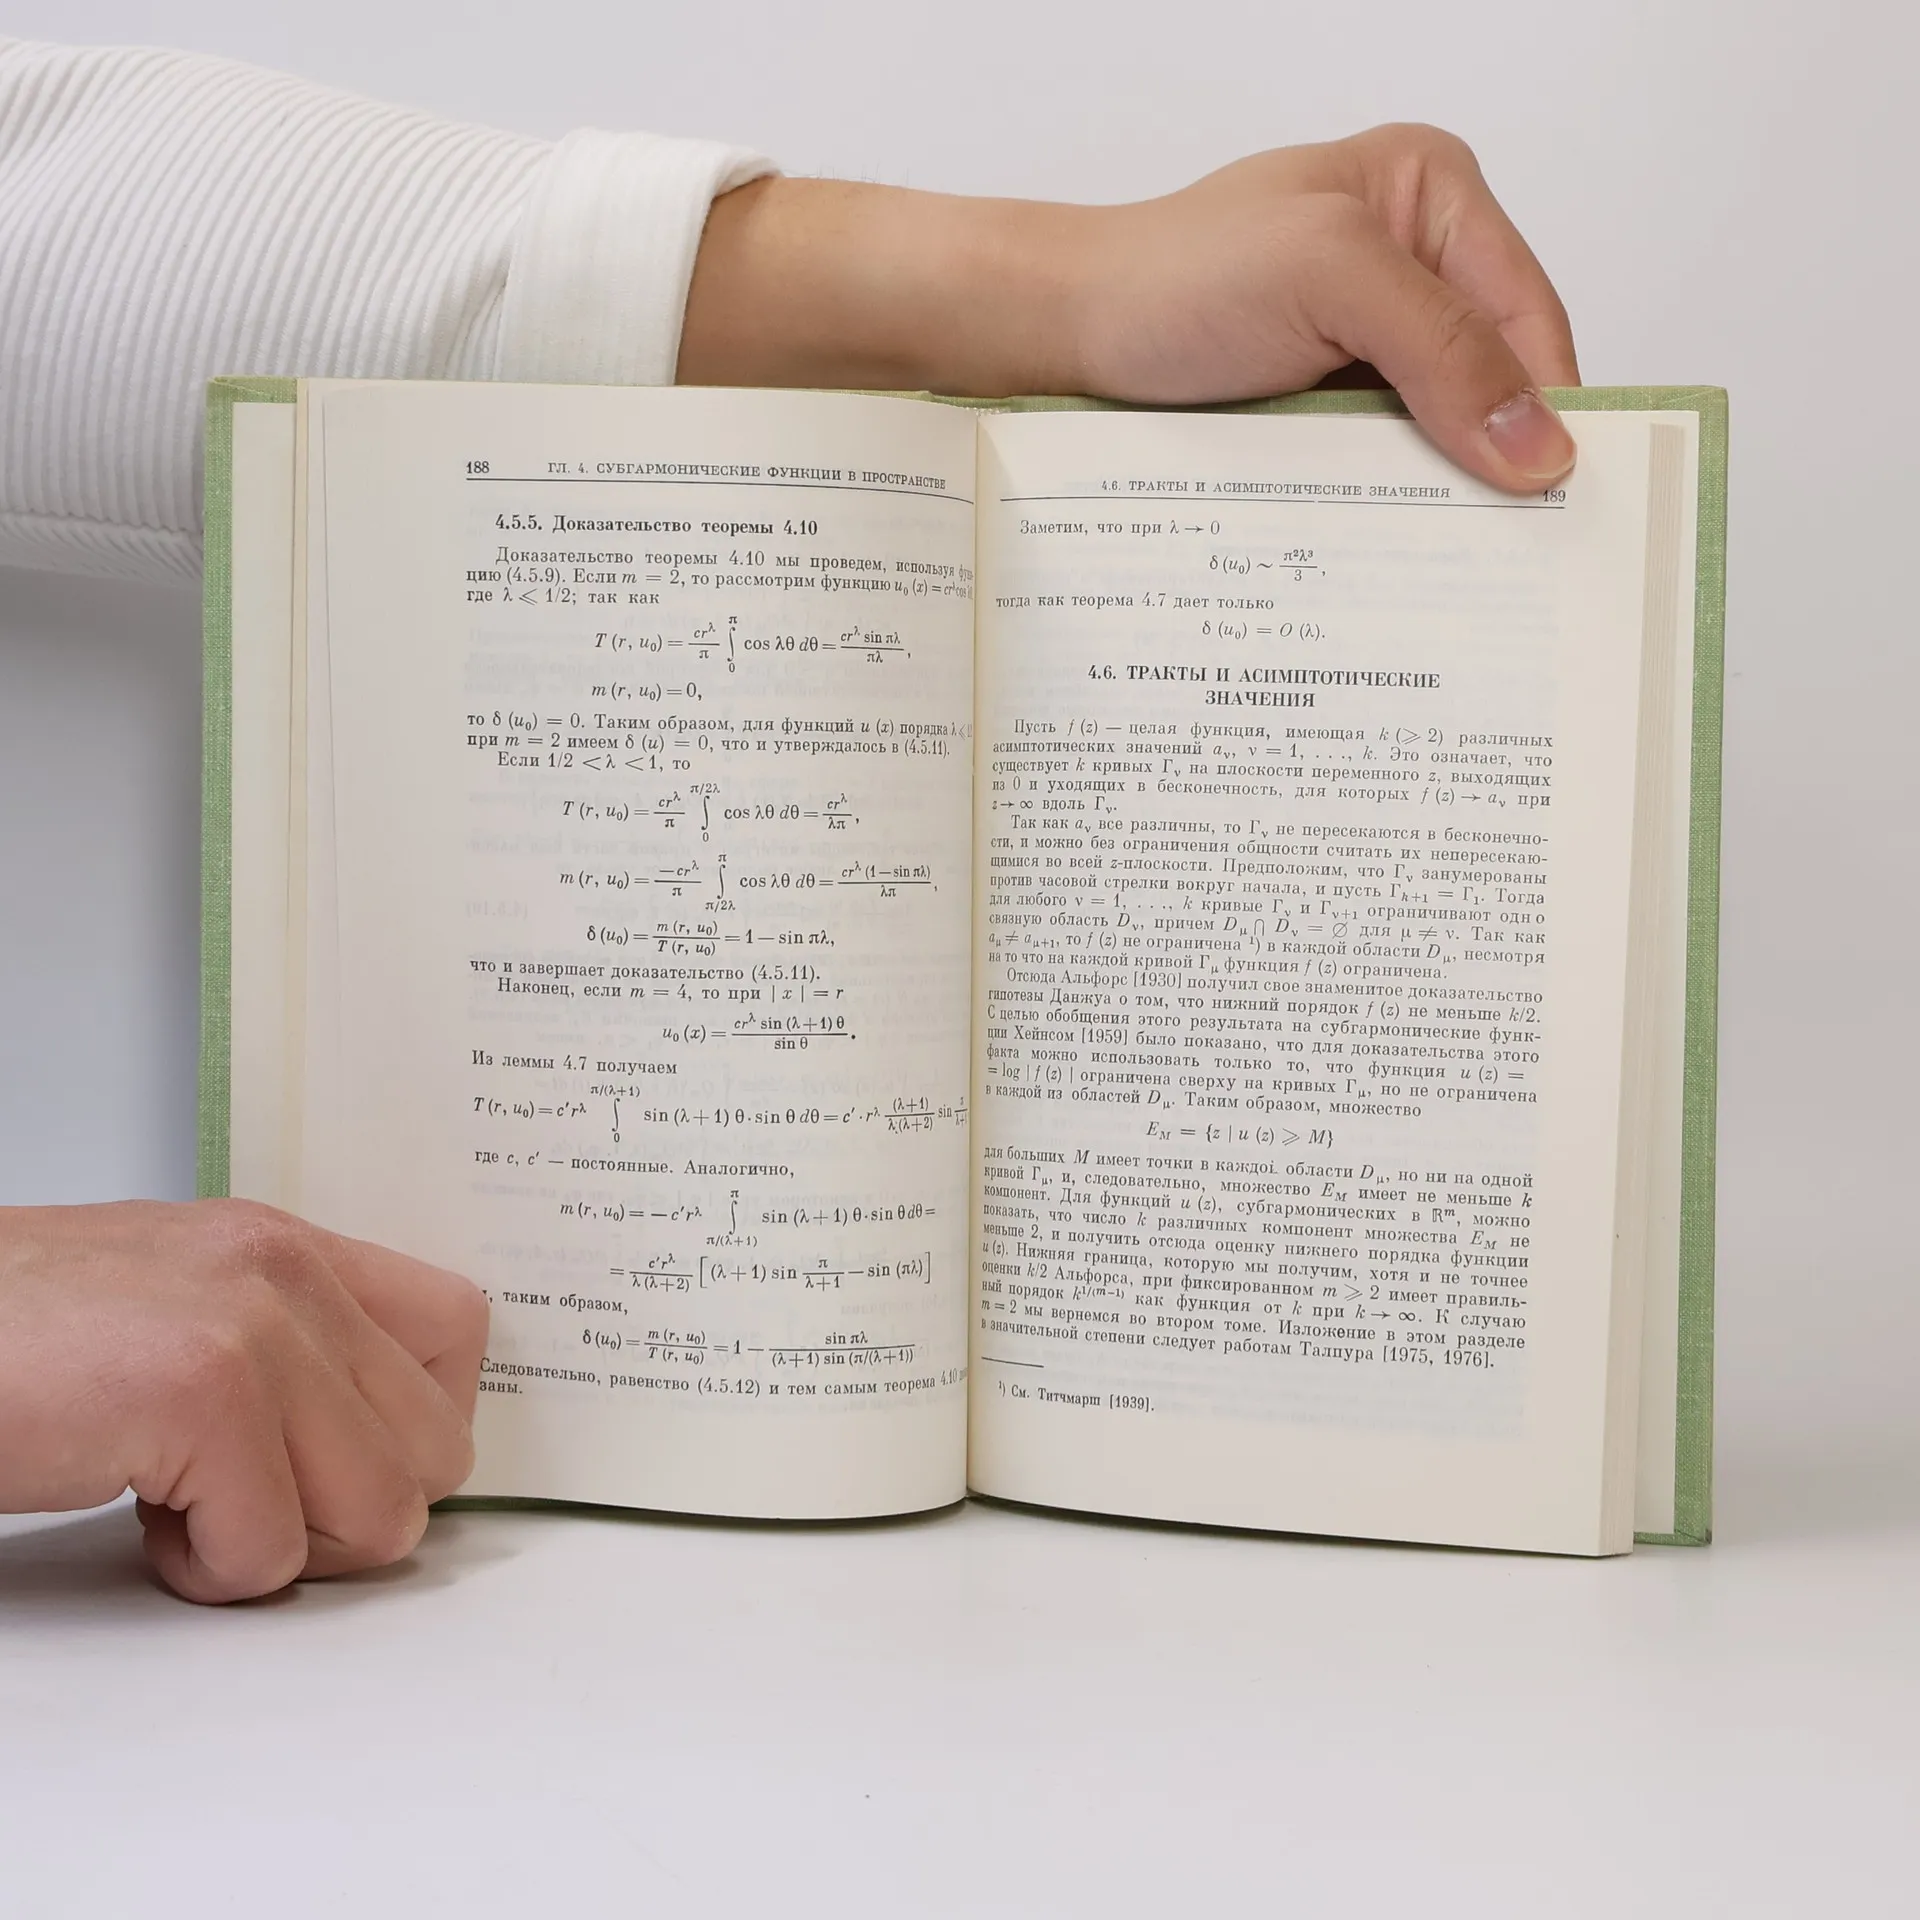 188 ГЛ. 4. СУБГАРМОНИЧЕСКИЕ ФУНКЦИИ В ПРОСТРАНСТВЕ
4.5.5. Доказательство теоремы 4.10
Доказательство теоремы 4.10 мы проведем, используя
цию (4.5.9). Если m = 2, то рассмотрим функцию u₀ (x) = cr^λ cos
где λ ⩽ 1/2; так как
T (r, u₀) = cr^λ/π ∫₀^π cos λθ dθ = cr^λ sin πλ/πλ,
m (r, u₀) = 0,
то δ (u₀) = 0. Таким образом, для функций u (x) порядка λ ⩽
при m = 2 имеем δ (u) = 0, что и утверждалось в (4.5.11).
Если 1/2 < λ < 1, то
T (r, u₀) = cr^λ/π ∫₀^{π/2λ} cos λθ dθ = cr^λ/λπ,
m (r, u₀) = −cr^λ/π ∫_{π/2λ}^π cos λθ dθ = cr^λ (1 — sin πλ)/λπ,
δ (u₀) = m (r, u₀)/T (r, u₀) = 1 — sin πλ,
что и завершает доказательство (4.5.11).
Наконец, если m = 4, то при | x | = r
u₀ (x) = cr^λ sin (λ + 1) θ/sin θ.
Из леммы 4.7 получаем
T (r, u₀) = c′r^λ ∫₀^{π/(λ+1)} sin (λ + 1) θ · sin θ dθ = c′ · r^λ (λ+1)/λ(λ+2) sin
где c, c′ — постоянные. Аналогично,
m (r, u₀) = — c′r^λ ∫_{π/(λ+1)}^π sin (λ + 1) θ · sin θ dθ =
= c′r^λ/λ (λ+2) [(λ + 1) sin π/λ+1 — sin (πλ)]
, таким образом,
δ (u₀) = m (r, u₀)/T (r, u₀) = 1 — sin πλ/(λ + 1) sin (π/(λ+1))
Следовательно, равенство (4.5.12) и тем самым теорема 4.10
заны.
4.6. ТРАКТЫ И АСИМПТОТИЧЕСКИЕ ЗНАЧЕНИЯ 189
Заметим, что при λ → 0
δ (u₀) ~ π²λ³/3,
тогда как теорема 4.7 дает только
δ (u₀) = O (λ).
4.6. ТРАКТЫ И АСИМПТОТИЧЕСКИЕ
ЗНАЧЕНИЯ
Пусть f (z) — целая функция, имеющая k (⩾ 2) различных
асимптотических значений a_ν, ν = 1, . . ., k. Это означает, что
существует k кривых Γ_ν на плоскости переменного z, выходящих
из 0 и уходящих в бесконечность, для которых f (z) → a_ν при
z → ∞ вдоль Γ_ν.
Так как a_ν все различны, то Γ_ν не пересекаются в бесконечно-
сти, и можно без ограничения общности считать их непересекаю-
щимися во всей z-плоскости. Предположим, что Γ_ν занумерованы
против часовой стрелки вокруг начала, и пусть Γ_{k+1} = Γ₁. Тогда
для любого ν = 1, . . ., k кривые Γ_ν и Γ_{ν+1} ограничивают одно
связную область D_ν, причем D_μ ⋂ D_ν = ∅ для μ ≠ ν. Так как
a_μ ≠ a_{μ+1}, то f (z) не ограничена ¹) в каждой области D_μ, несмотря
на то что на каждой кривой Γ_μ функция f (z) ограничена.
Отсюда Альфорс [1930] получил свое знаменитое доказательство
гипотезы Данжуа о том, что нижний порядок f (z) не меньше k/2.
С целью обобщения этого результата на субгармонические функ-
ции Хейнсом [1959] было показано, что для доказательства этого
факта можно использовать только то, что функция u (z) =
= log | f (z) | ограничена сверху на кривых Γ_μ, но не ограничена
в каждой из областей D_μ. Таким образом, множество
E_M = {z | u (z) ⩾ M}
для больших M имеет точки в каждой области D_μ, но ни на одной
кривой Γ_μ, и, следовательно, множество E_M имеет не меньше k
компонент. Для функций u (z), субгармонических в ℝ^m, можно
показать, что число k различных компонент множества E_M не
меньше 2, и получить отсюда оценку нижнего порядка функции
u (z). Нижняя граница, которую мы получим, хотя и не точнее
оценки k/2 Альфорса, при фиксированном m ⩾ 2 имеет правиль-
ный порядок k^{1/(m−1)} как функция от k при k → ∞. К случаю
m = 2 мы вернемся во втором томе. Изложение в этом разделе
в значительной степени следует работам Талпура [1975, 1976].
¹) См. Титчмарш [1939].